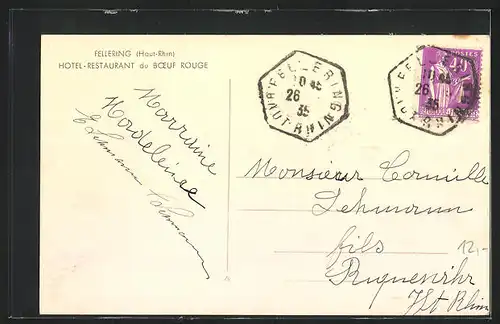 FELLERING (Haut-Rhin)
HOTEL-RESTAURANT du BŒUF ROUGE
Marraine
Madeleine
E Lehmann Lehmann
FELLERING
10 45
26
35
HAUT-RHIN
FELLERING
10 45
26
35
HAUT-RHIN
POSTES
Monsieur Camille
Lehmann
fils
Riquewihr
Ht Rhin
12,-